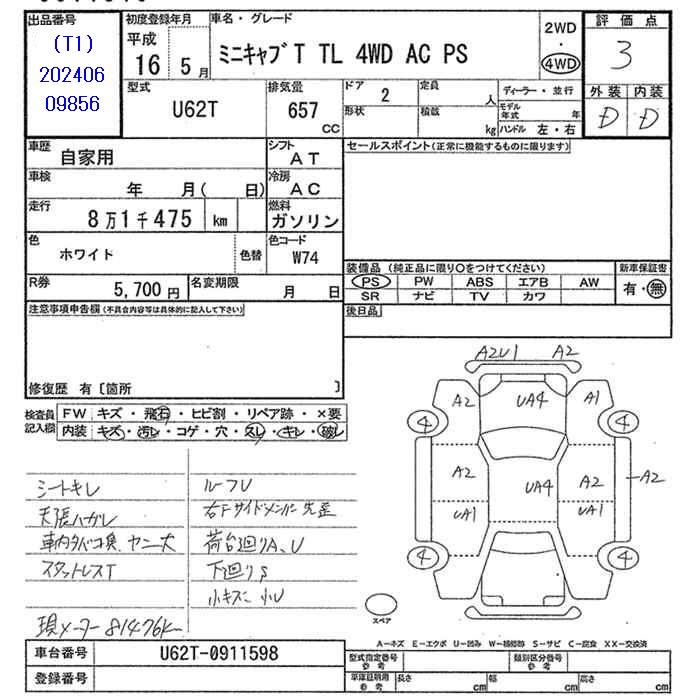 出品番号
(T1)
202406
09856
初度登録年月
平成
16 5月
車名・グレード
ミニキャブT TL 4WD AC PS
2WD
・
4WD
評価点
3
外装 内装
D D
型式
U62T
排気量
657
CC
ドア
2
形状
定員
人
積載
kg
ディーラー・並行
モデル年式 年
ハンドル 左・右
車歴
自家用
シフト
AT
車検
年 月( 日)
冷房
AC
走行
8万1千475 km
燃料
ガソリン
色
ホワイト
色替
色コード
W74
R券
5,700円
名変期限
月 日
セールスポイント(正常に機能するものに限ります)
装備品 (純正品に限り○をつけてください)
PS PW ABS エアB AW
SR ナビ TV カワ
新車保証書
有・無
後日品
注意事項申告欄(不具合内容等は具体的に記入して下さい)
修復歴 有〔箇所 〕
検査員
記入欄
FW キズ・飛石・ヒビ割・リペア跡・×要
内装 キズ・汚レ・コゲ・穴・スレ・キレ・破レ
シートキレ
天張ハガレ
車内タバコ臭、ヤニ大
スタットレスT
現メーター81476K
ルーフU
右Fサイドメンバー先歪
荷台廻りA、U
下廻りS
小キズ 小U
A2U1 A2
A2 UA4 A1
4 4
A2 UA4 A2 A2
UA1 UA1
4 4
スペア
A-キズ E-エクボ U-凹み W-補修跡 S-サビ C-腐食 XX-交換済
車台番号
U62T-0911598
登録番号
型式指定番号
参考
類別区分番号
参考
車庫証明用
参考
長さ cm
幅 cm
高さ cm